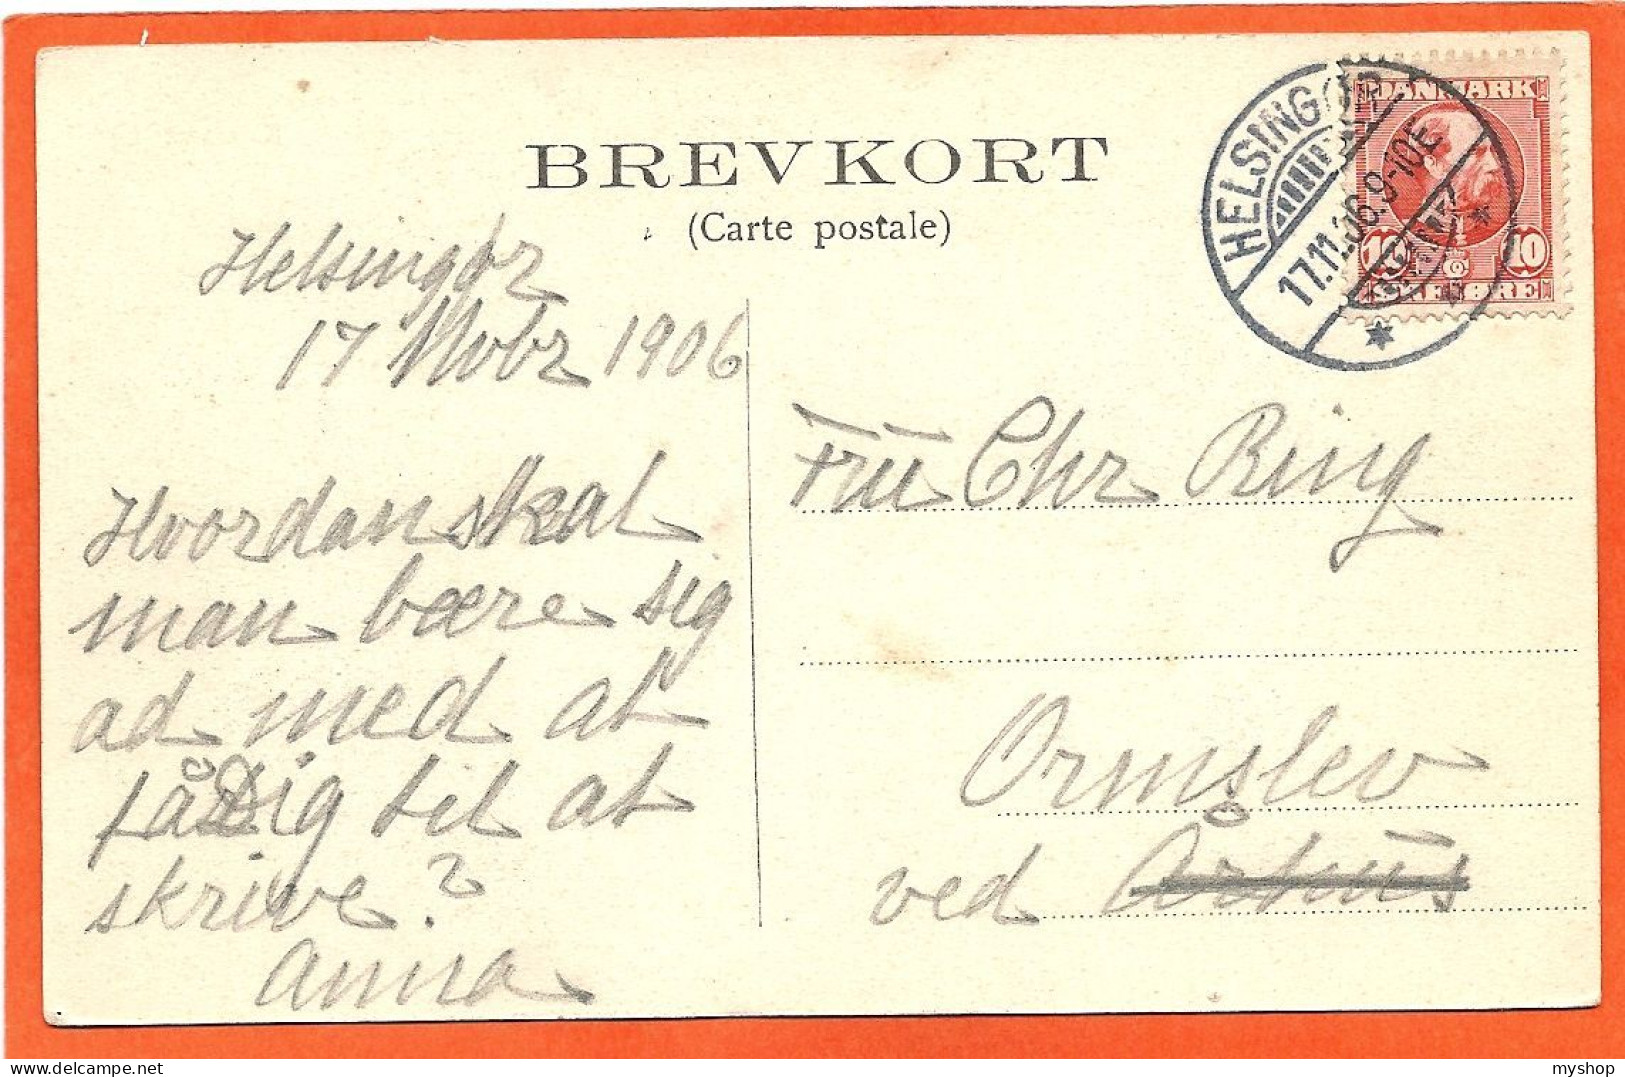 BREVKORT
(Carte postale)
HELSINGØR
17.11.06.9-10E
DANMARK
10 10
ØRE ØRE
Helsingør
17 Novbr 1906
Hvordan skal
man bære sig
ad med at
få Dig til at
skrive?
Anna
Frū Chr Ring
Ormslev
ved Århūs
myshop